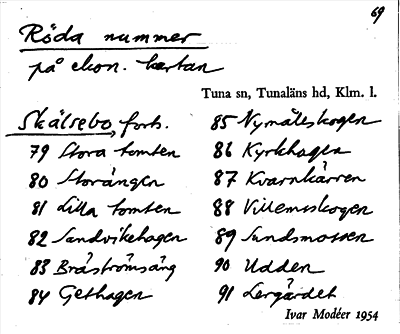 69
Röda nummer
på ekon. kartan
Tuna sn, Tunaläns hd, Klm. l.
Skälsebo, forts.
79 Stora tomten
80 Storängen
81 Lilla tomten
82 Sandvikehagen
83 Bråströmsäng
84 Gethagen
85 Nymåleskogen
86 Kyrkhagen
87 Kvarnkärren
88 Villemsskogen
89 Sundsmossen
90 Udden
91 Lergärdet
Ivar Modéer 1954